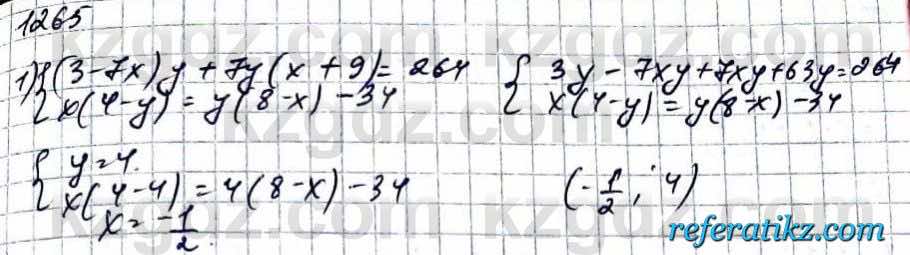 1265
1) {(3-7x)y + 7y(x+9) = 264 { 3y - 7xy + 7xy + 63y = 264
{x(4-y) = y(8-x) - 34 { x(4-y) = y(8-x) - 34
{ y = 4.
{ x(4-4) = 4(8-x) - 34 (-1/2; 4)
x = -1/2.
kzgdz.com
referatikz.com